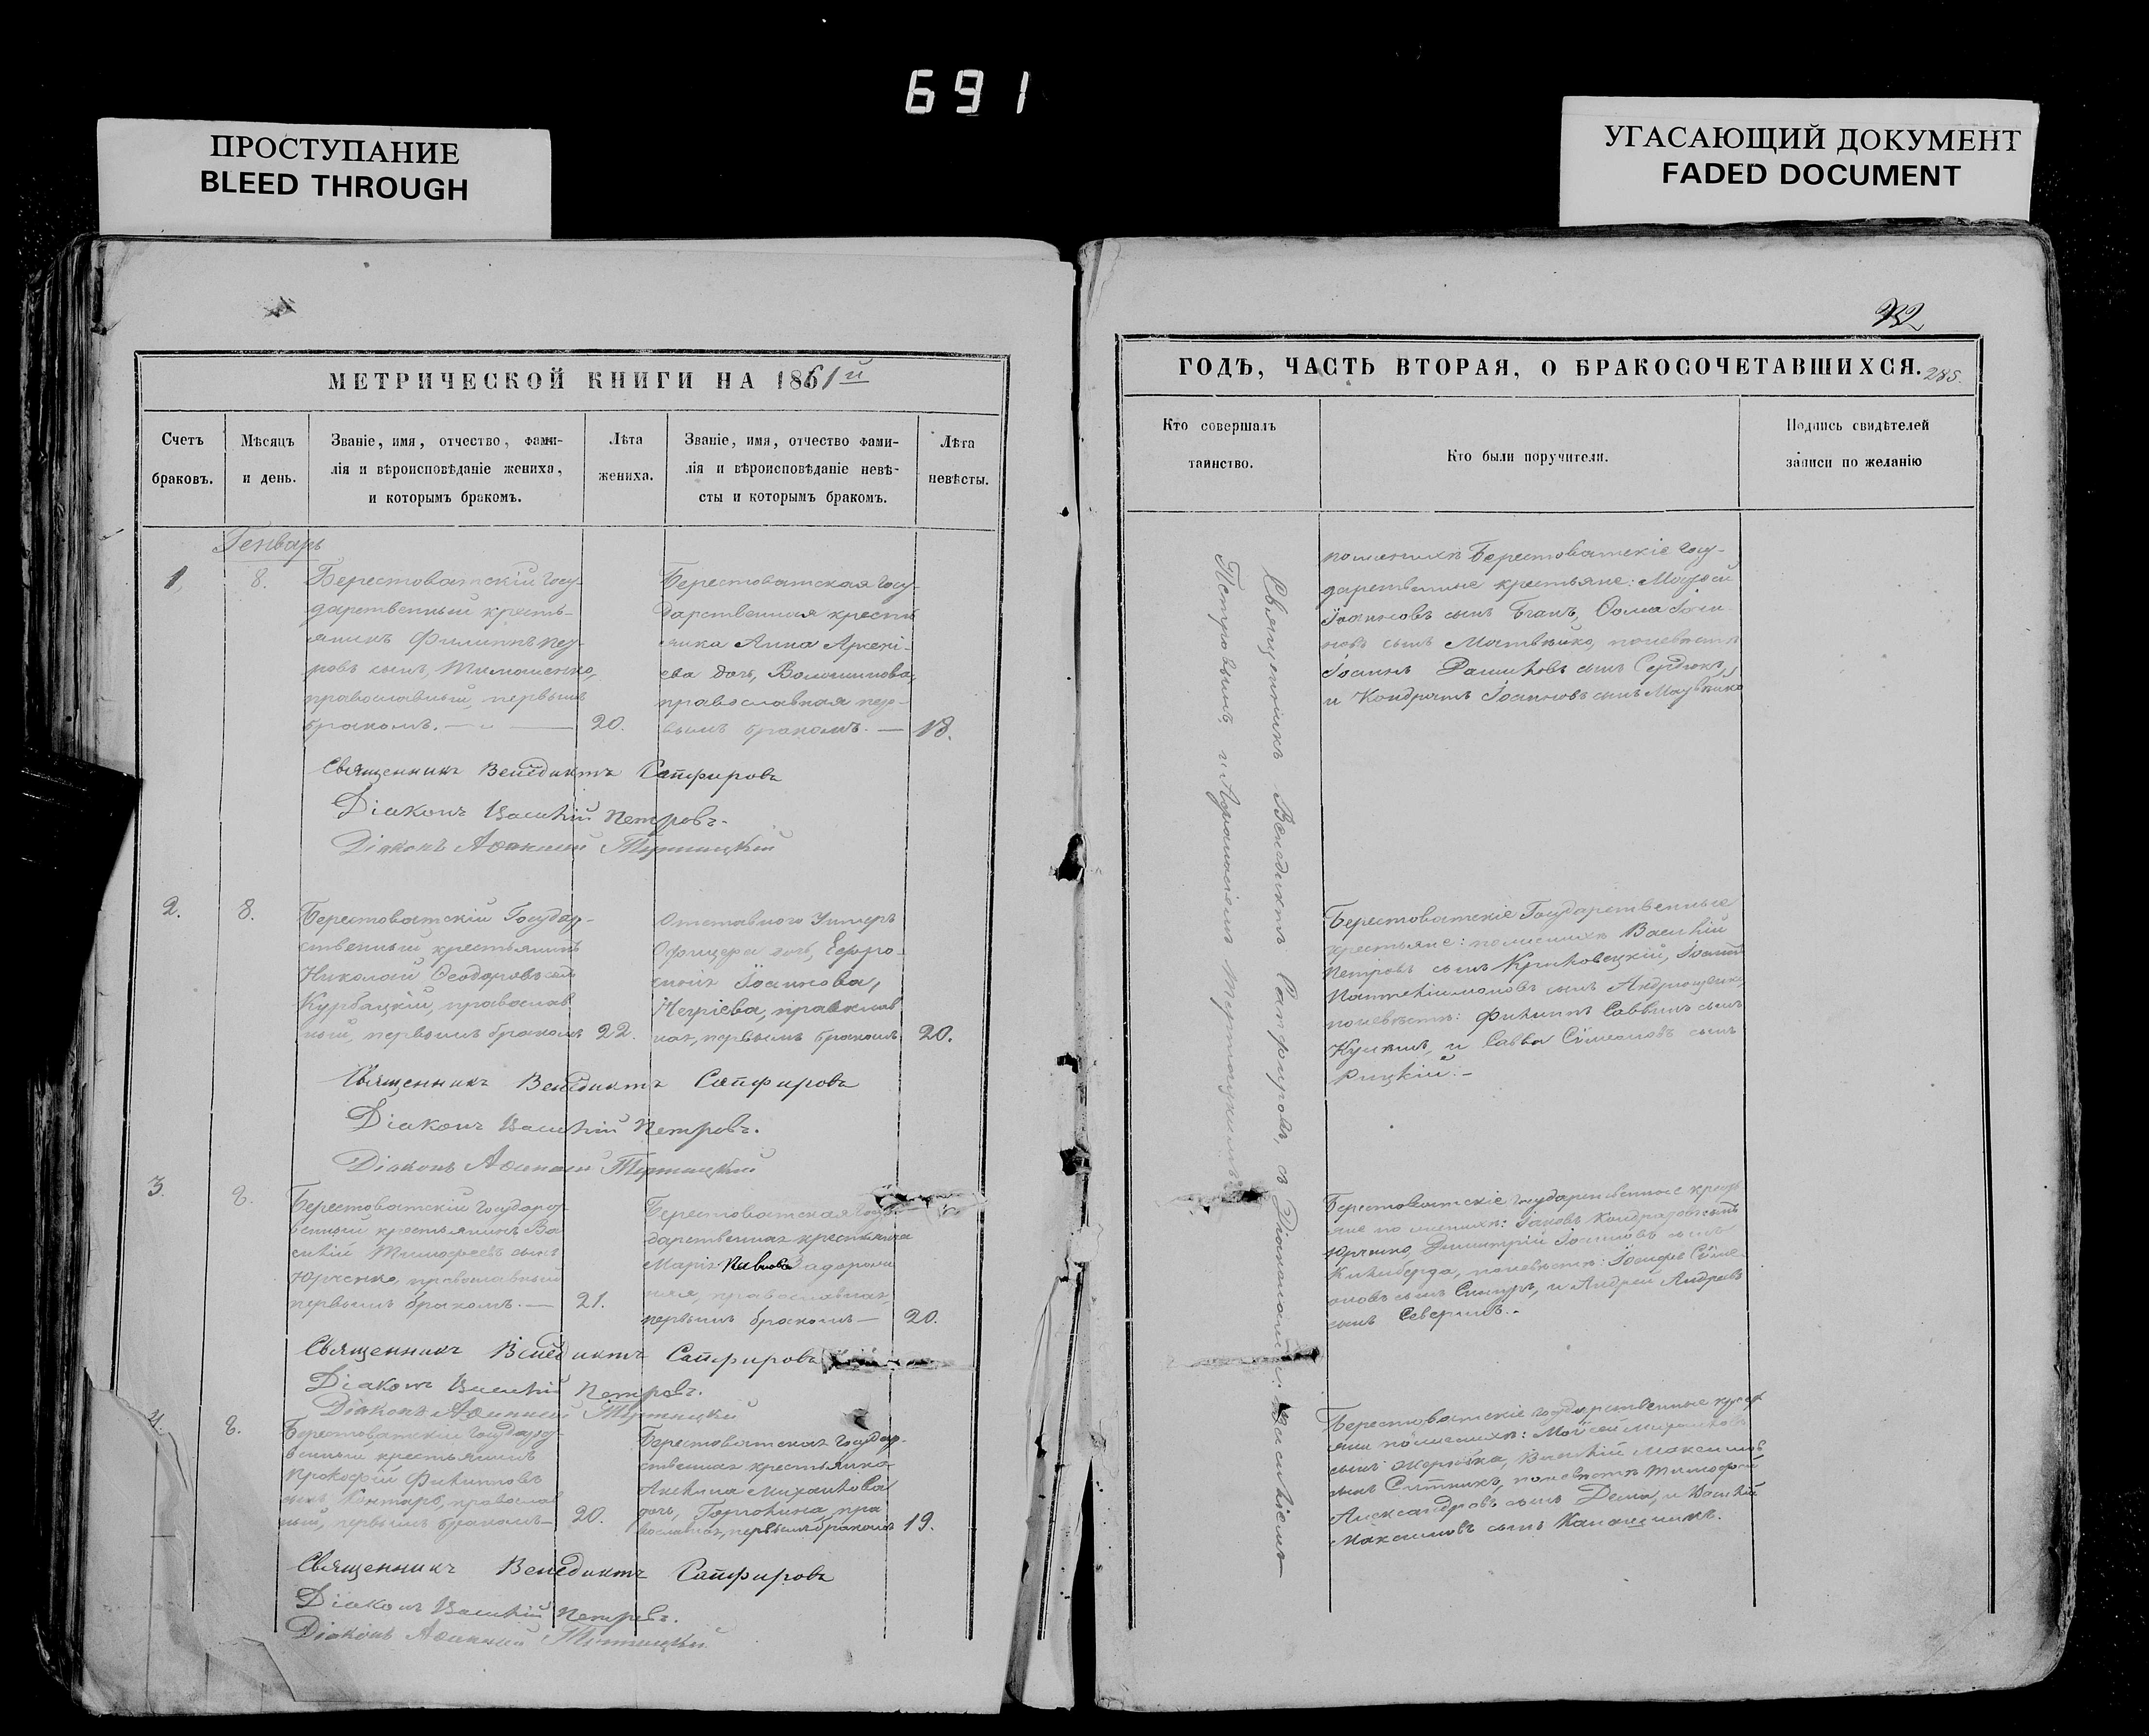 691
ПРОСТУПАНИЕ
BLEED THROUGH
УГАСАЮЩИЙ ДОКУМЕНТ
FADED DOCUMENT
МЕТРИЧЕСКОЙ КНИГИ НА 1861й
Счетъ браковъ.
Мѣсяцъ и день.
Званіе, имя, отчество, фами-
лія и вѣроисповѣданіе жениха,
и которымъ бракомъ.
Лѣта жениха.
Званіе, имя, отчество фами-
лія и вѣроисповѣданіе невѣ-
сты и которымъ бракомъ.
Лѣта невѣсты.
Генварь
1,
8.
Берестоватскій госу-
дарственный кресть-
янинъ Филиппъ Пет-
ровъ сынъ, Тимошенко,
православный, первымъ
бракомъ.
20.
Берестоватская госу-
дарственная кресть
янка Анна Арсені-
ева дочь, Волошинова,
православная пер-
вымъ бракомъ.
18.
Священникъ Венедиктъ Сапфировъ
Діаконъ Василій Петровъ.
Діаконъ
2.
8.
Берестоватскій Государ-
ственный крестьянинъ
Николай Ѳеодоровъ сынъ
Курбацкій, православ
ный, первымъ бракомъ
22.
Отставного Унтеръ
Офицера дочь, Евфро-
синія Іоаннова,
православ
ная, первымъ бракомъ
20.
Священникъ Венедиктъ Сапфировъ
Діаконъ Василій Петровъ.
Діаконъ
3.
8.
Берестоватскій государст
венный крестьянинъ Ва
силій Тимофеевъ сынъ
Юрченко, православный
первымъ бракомъ.
21.
Берестоватская госу
дарственная крестьянка
Марія Павлова
православная,
первымъ бракомъ
20.
Священникъ Венедиктъ Сапфировъ
Діаконъ Василій Петровъ.
Діаконъ
4.
8.
Берестоватскій государст
венный крестьянинъ
Прокофій Филипповъ
сынъ православ
ный, первымъ бракомъ
20.
Берестоватская государ-
ственная крестьянка
Акилина Михайлова
дочь, пра
вославная, первымъ бракомъ
19.
Священникъ Венедиктъ Сапфировъ
Діаконъ Василій Петровъ.
Діаконъ
ГОДѢ, ЧАСТЬ ВТОРАЯ, О БРАКОСОЧЕТАВШИХСЯ.
285.
Кто совершалъ таинство.
Кто были поручители.
Подпись свидѣтелей записи по желанію
Священникъ Венедиктъ Сапфировъ, съ Діаконами: Василіемъ
Петровымъ, и
по женихѣ Берестоватскіе госу-
дарственные крестьяне: Моѵсей
Іоанновъ сынъ Ѳома Іоан
новъ сынъ Матвѣйко, по невѣстѣ
Іоаннъ сынъ Сердюкъ,
и Кондратъ Іоанновъ сынъ
Берестоватскіе Государственные
крестьяне: по женихѣ Василій
Петровъ сынъ Іоаннъ
Пантелеимоновъ сынъ
по невѣстѣ: Филиппъ Саввинъ сынъ
и Савва Сѵмеоновъ сынъ
Берестоватскіе государственные крест
яне по женихѣ: Іаковъ Кондратовъ сынъ
Юрченко, Димитрій Іоанновъ сынъ
по невѣстѣ: Іосифъ Сѵме
оновъ сынъ и Андрей Андреевъ
сынъ Северинъ.
Берестоватскіе государственные крест
яне по женихѣ: Моѵсей
сынъ Василій Максимовъ
сынъ Ситникъ, по невѣстѣ Тимофей
Александровъ сынъ Дема, и Василій
Максимовъ сынъ